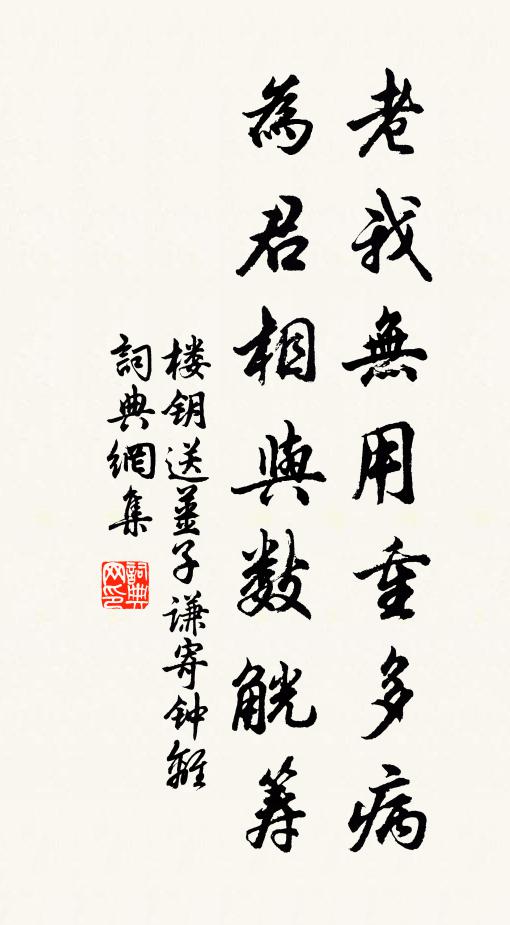 老我無用重多病
為君相與數觥籌
楼钥送薑子谦寄钟離
詞典網集
詞典网印